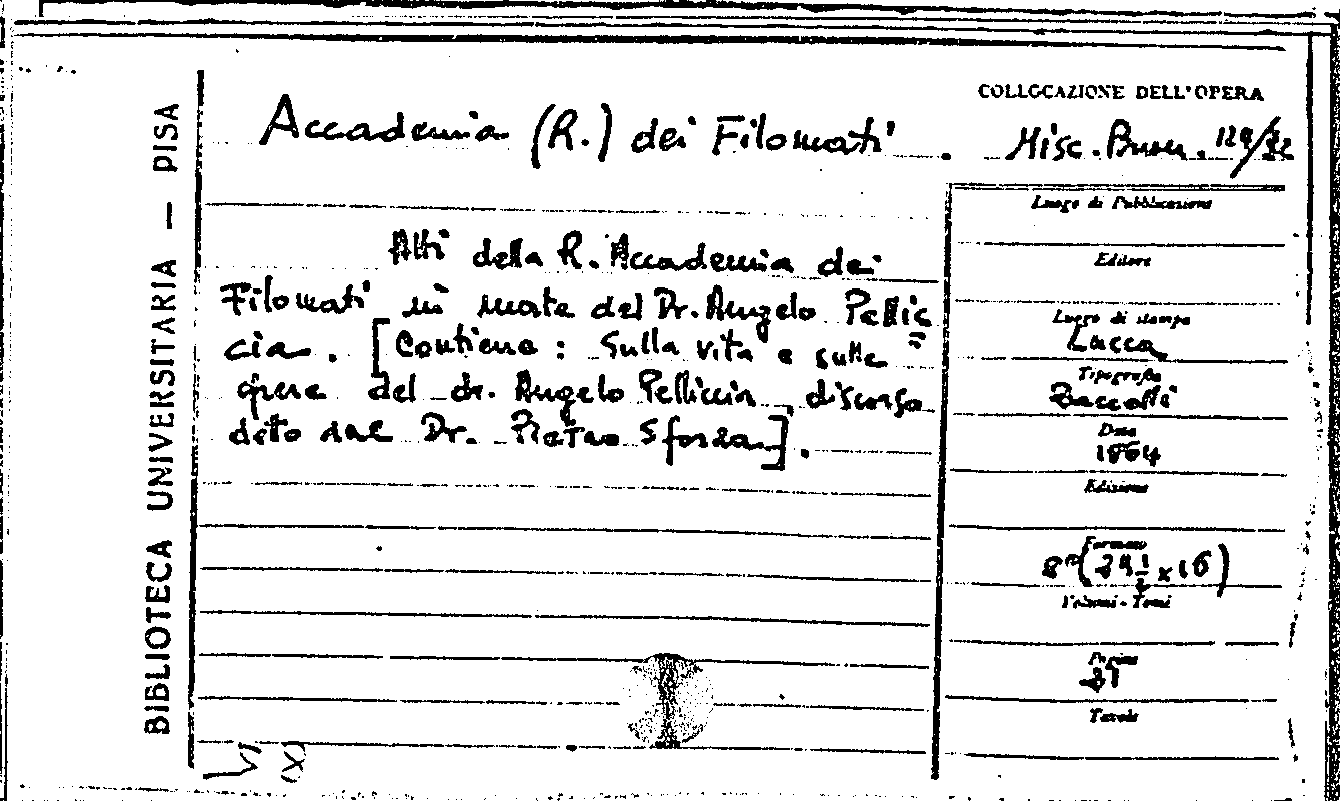 BIBLIOTECA UNIVERSITARIA — PISA
Accademia (R.) dei Filomati.
COLLOCAZIONE DELL'OPERA
Misc. Buon.
Atti della R. Accademia dei
Filomati in morte del Dr. Angelo Pellic=
cia. [Contiene: Sulla vita e sulle
opere del dr. Angelo Pelliccia, discorso
detto dal Dr. Pietro Sforza].
Luogo di Pubblicazione
Editore
Luogo di stampa
Lucca
Tipografia
Baccelli
Data
1864
Edizione
Formato
8° ( x 16)
Volumi - Tomi
Pagine
Tavole
VI
(X)